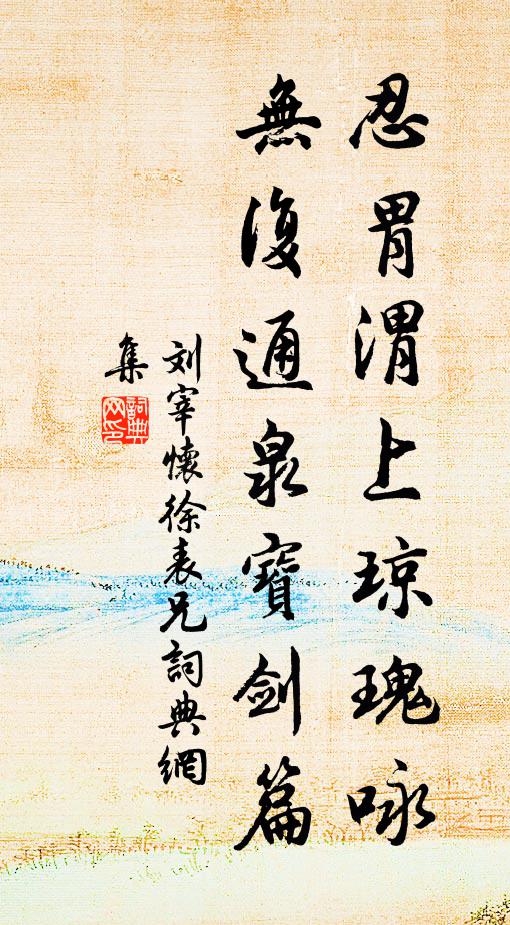 忍胃渭上琼瑰咏
無復通泉寶剑篇
刘宰懷徐表兄詞典網
集
詞典网印